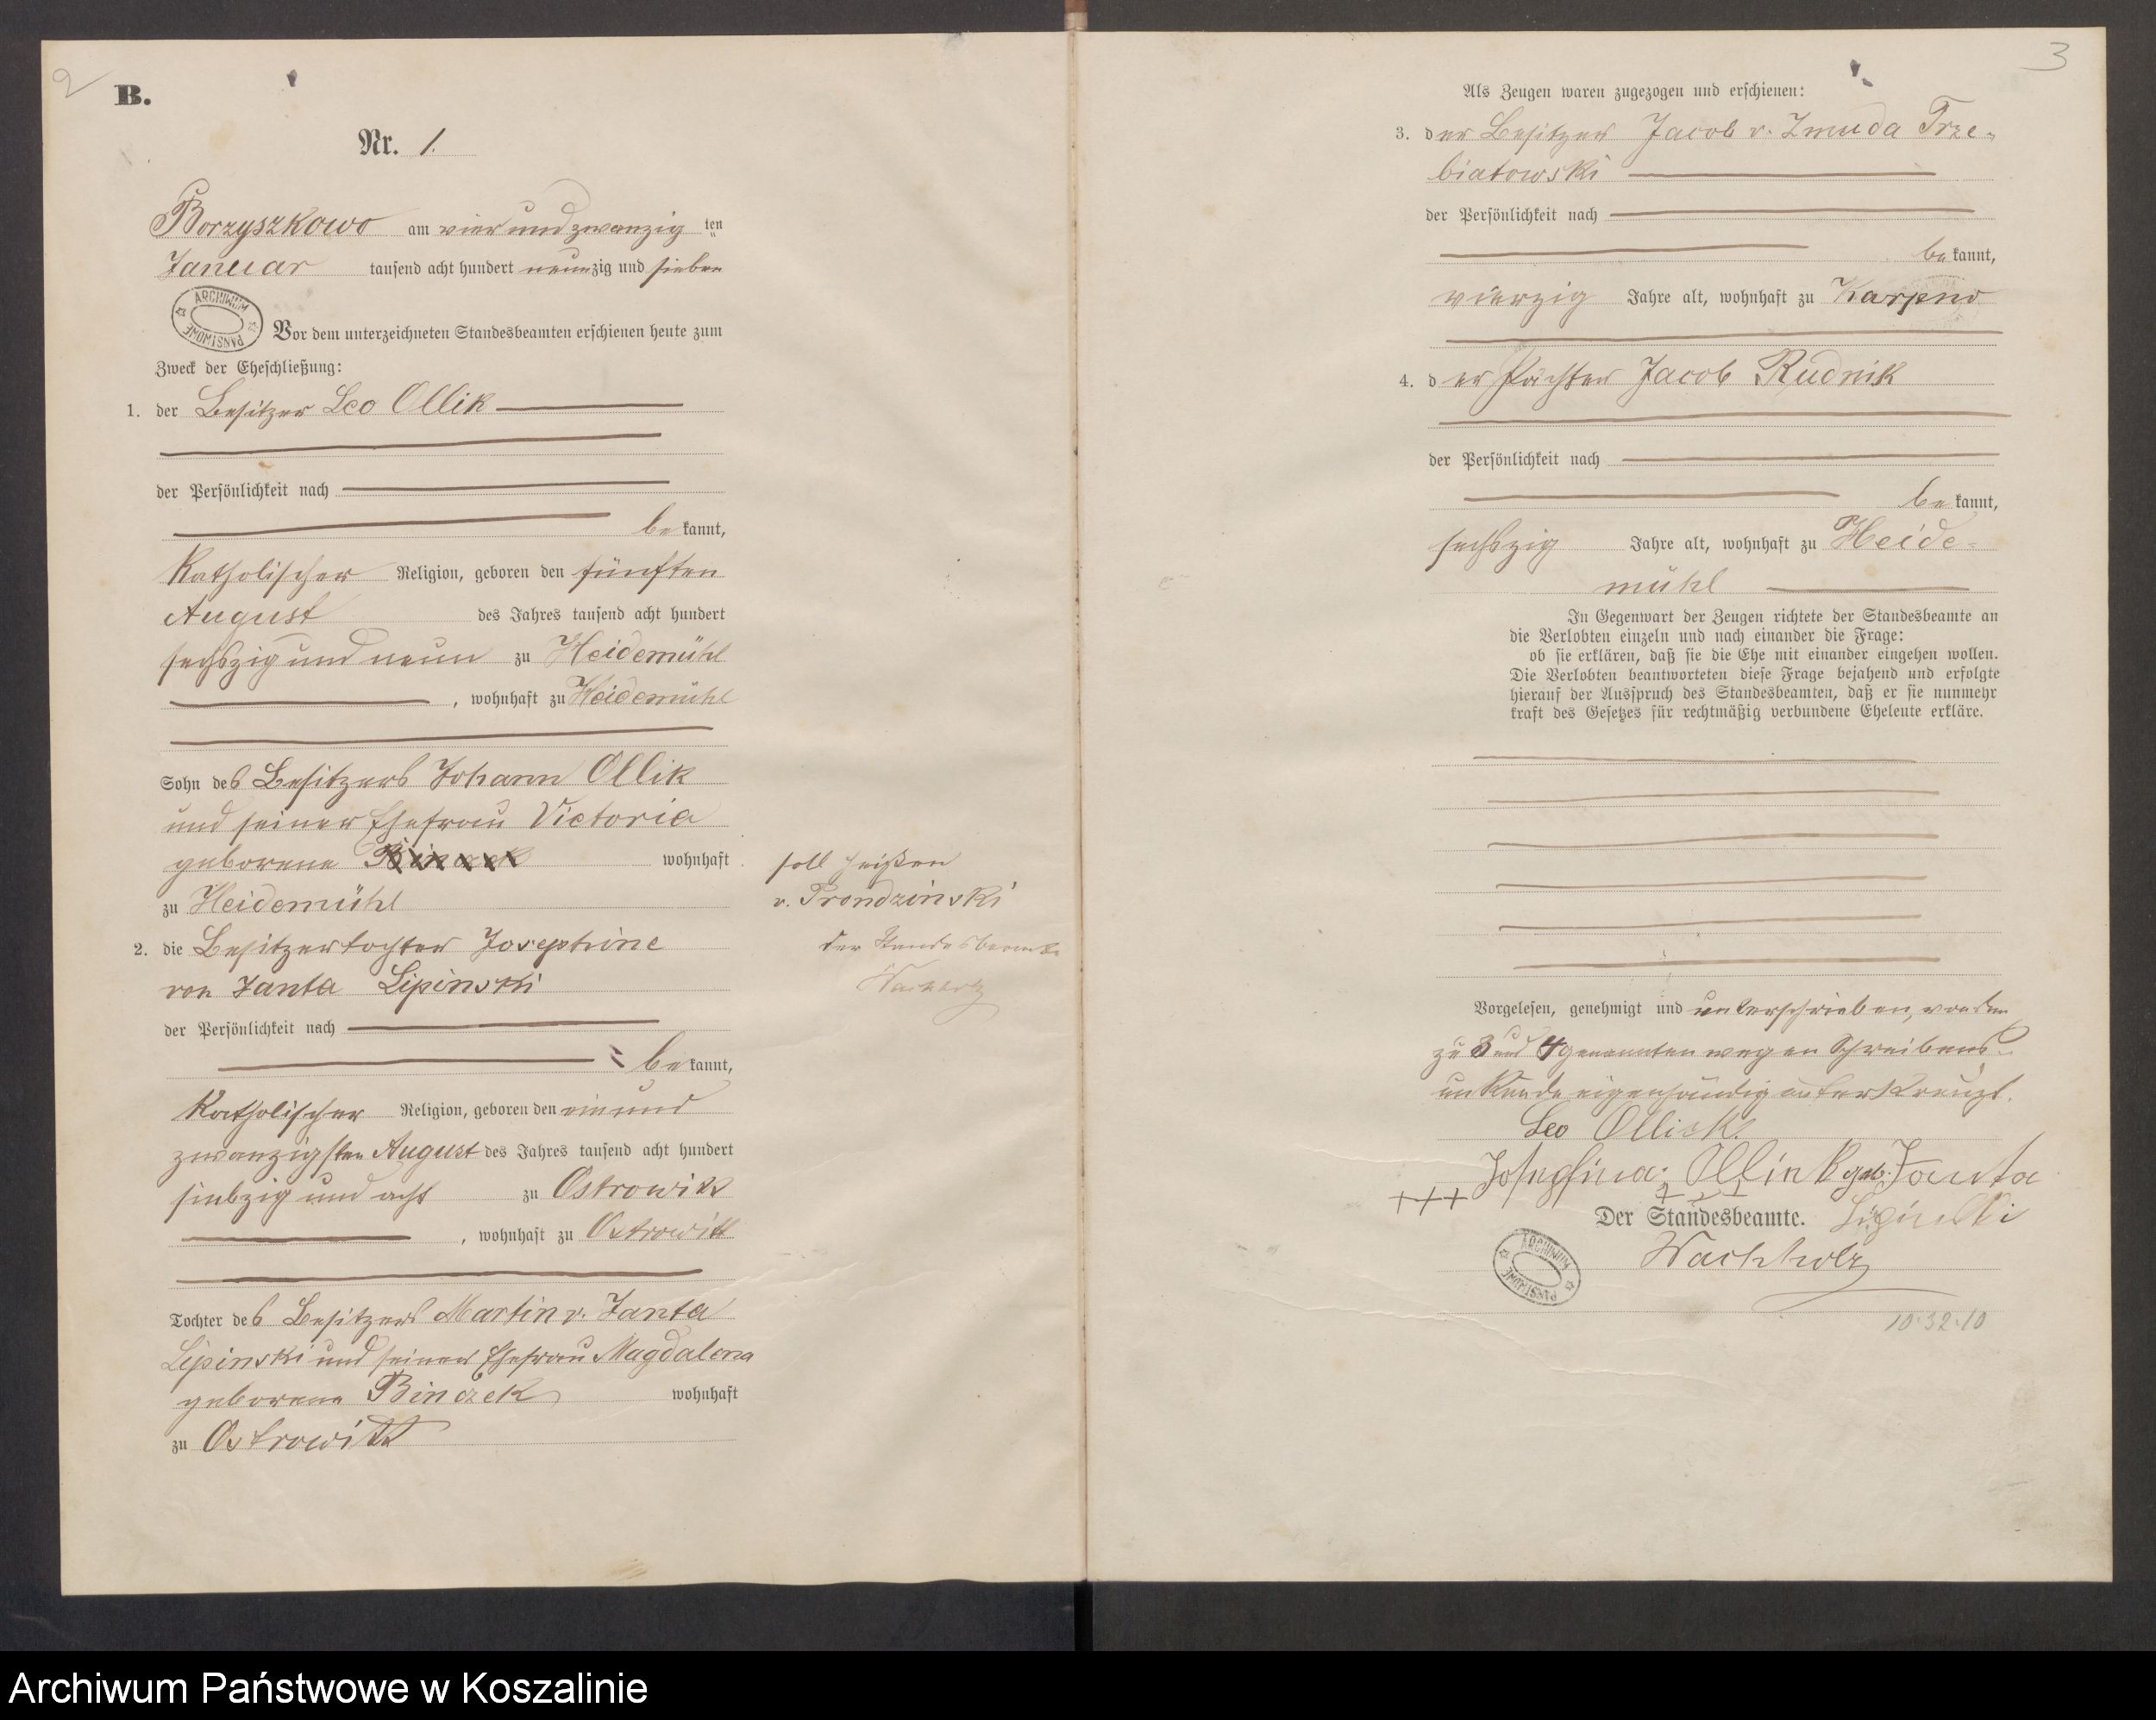 2
B.
Nr. 1.
Borzyszkowo am vier und zwanzig ten
Januar tausend acht hundert neunzig und sieben
ARCHIWUM PAŃSTWOWE
Vor dem unterzeichneten Standesbeamten erschienen heute zum
Zweck der Eheschließung:
1. der Besitzer Leo Ollik
der Persönlichkeit nach
bekannt,
Katholischer Religion, geboren den fünften
August des Jahres tausend acht hundert
sechszig und neun zu Heidemühl
, wohnhaft zu Heidemühl
Sohn des Besitzers Johann Ollik
und seiner Ehefrau Victoria
geborene Binczek wohnhaft
zu Heidemühl
soll heißen
v. Prondzinski
der Standesbeamte
Wachholz
2. die Besitzertochter Josephine
von Janta Lipinski
der Persönlichkeit nach
bekannt,
Katholischer Religion, geboren den ein und
zwanzigsten August des Jahres tausend acht hundert
siebzig und acht zu Ostrowitt
, wohnhaft zu Ostrowitt
Tochter des Besitzers Martin v. Janta
Lipinski und seiner Ehefrau Magdalena
geborene Binczek wohnhaft
zu Ostrowitt
3
Als Zeugen waren zugezogen und erschienen:
3. der Besitzer Jacob v. Zmuda Trze-
biatowski
der Persönlichkeit nach
bekannt,
vierzig Jahre alt, wohnhaft zu Karpno
4. der Pächter Jacob Rudnik
der Persönlichkeit nach
bekannt,
sechszig Jahre alt, wohnhaft zu Heide-
mühl
In Gegenwart der Zeugen richtete der Standesbeamte an
die Verlobten einzeln und nach einander die Frage:
ob sie erklären, daß sie die Ehe mit einander eingehen wollen.
Die Verlobten beantworteten diese Frage bejahend und erfolgte
hierauf der Ausspruch des Standesbeamten, daß er sie nunmehr
kraft des Gesetzes für rechtmäßig verbundene Eheleute erkläre.
Vorgelesen, genehmigt und unterschrieben, von den
zu 3 und 4 genannten wegen Schreibens-
unkunde eigenhändig unterkreuzt.
Leo Ollick
Josephina Ollink geb. Janta
+++ +++
Der Standesbeamte. Lipinski
Wachholz
ARCHIWUM PAŃSTWOWE
10.32.10
Archiwum Państwowe w Koszalinie